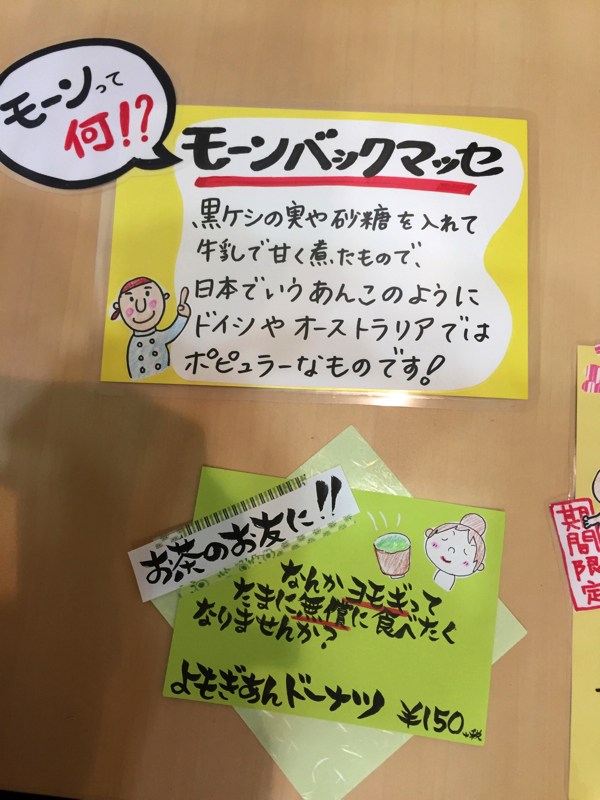 モーンって
何!?
モーンバックマッセ
黒ケシの実や砂糖を入れて
牛乳で甘く煮たもので、
日本でいうあんこのように
ドイツやオーストラリアでは
ポピュラーなものです!
お茶のお友に!!
なんかヨモギって
たまに無償に食べたく
なりませんか?
よもぎあんドーナツ ¥150+税
期間限定